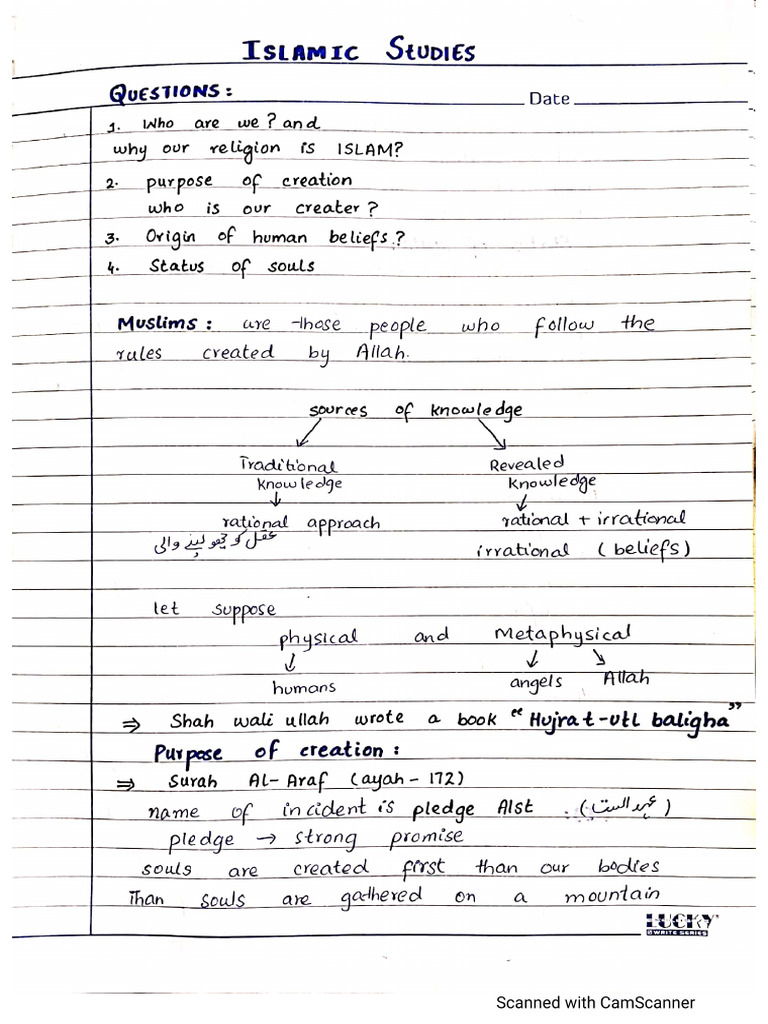 ISLAMIC STUDIES
QUESTIONS:
Date
1. Who are we? and
why our religion is ISLAM?
2. purpose of creation
who is our creater?
3. Origin of human beliefs?
4. Status of souls
Muslims: are those people who follow the
rules created by Allah.
sources of knowledge
Traditional Revealed
knowledge knowledge
rational approach rational + irrational
عقل کو چھو لینے والی irrational (beliefs)
let suppose
physical and Metaphysical
humans angels Allah
⇒ Shah wali ullah wrote a book "Hujrat-utl baligha"
Purpose of creation:
⇒ Surah Al-Araf (ayah - 172)
name of incident is pledge Alst (عہد الست)
pledge → strong promise
souls are created first than our bodies
Than souls are gathered on a mountain
LUCKY
WRITE SERIES
Scanned with CamScanner